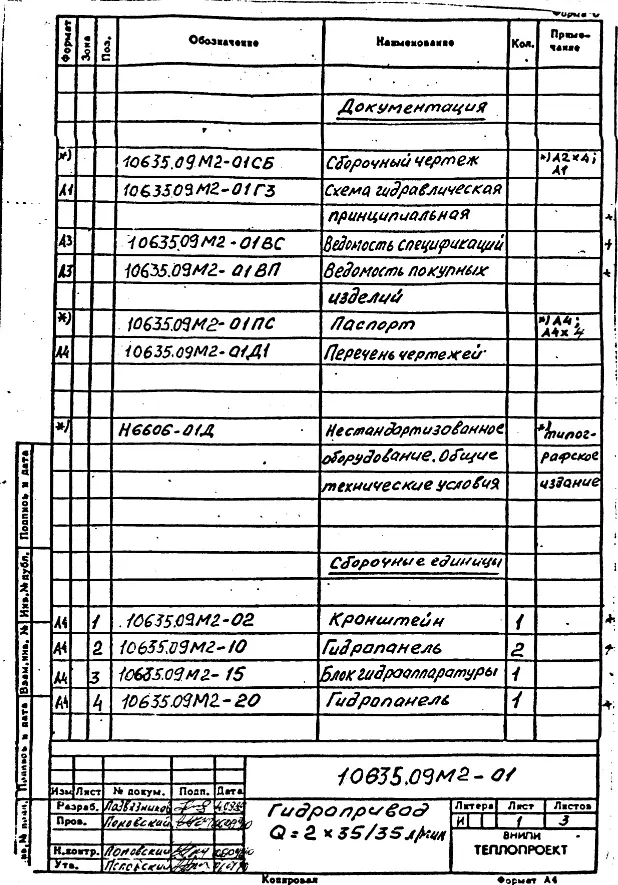 Формат Зона Поз. Обозначение Наименование Кол. Примечание
Документация
*) 10635.09М2-01СБ Сборочный чертеж *) А2×4;
А1
А1 10635.09М2-01ГЗ Схема гидравлическая
принципиальная
А3 10635.09М2-01ВС Ведомость спецификаций
А3 10635.09М2-01ВП Ведомость покупных
изделий
*) 10635.09М2-01ПС Паспорт *) А4;
А4×4
А4 10635.09М2-01Д1 Перечень чертежей
*) Н6606-01Д Нестандартизованное *) типог-
оборудование. Общие рафское
технические условия издание
Сборочные единицы
А4 1 10635.09М2-02 Кронштейн 1
А4 2 10635.09М2-10 Гидропанель 2
А4 3 10635.09М2-15 Блок гидроаппаратуры 1
А4 4 10635.09М2-20 Гидропанель 1
Подпись и дата
Инв.№ публ.
Взам.инв. №
Подпись и дата
10635.09М2-01
Изм Лист № докум. Подп. Дата
Разраб.
Пров. Поповский
Н.контр. Поповский
Утв. Поповский
Гидропривод
Q=2×35/35 л/мин
Литера Лист Листов
И 1 3
ВНИПИ
ТЕПЛОПРОЕКТ
Копировал Формат А4